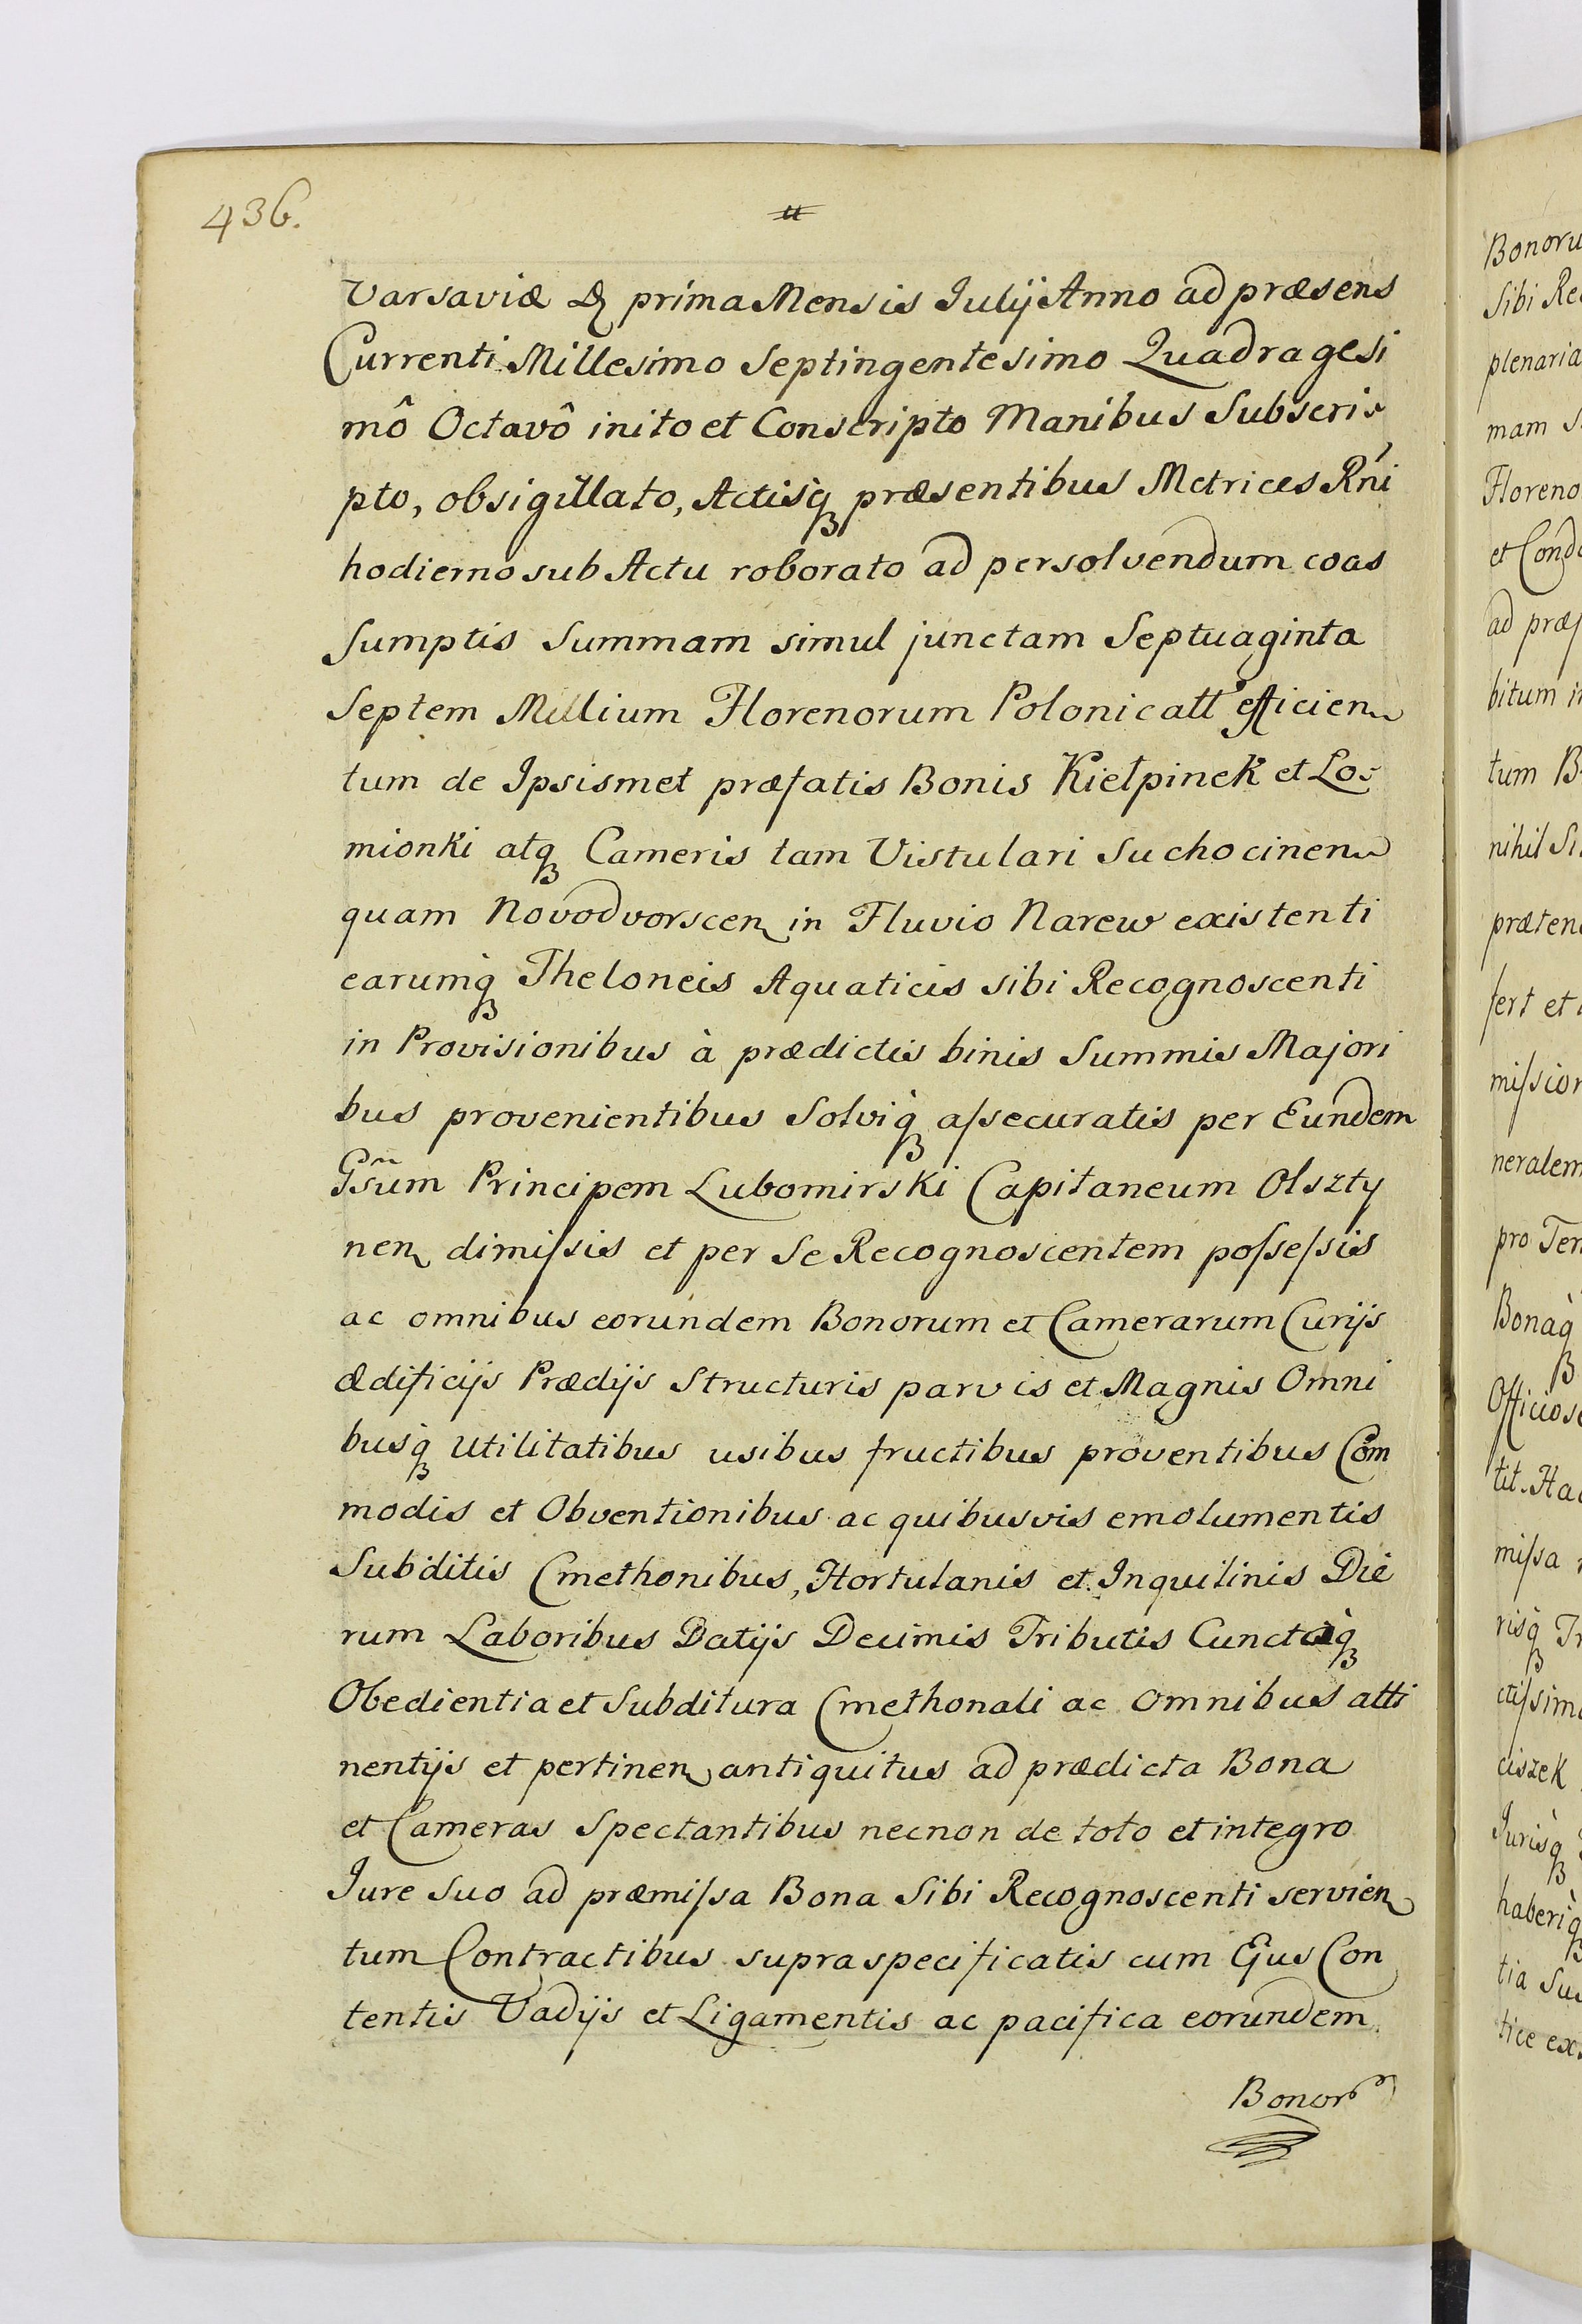 436.
Varsaviæ prima Mensis Julij Anno ad præsens
Currenti Millesimo Septingentesimo Quadragesi
mô Octavô inito et Conscripto Manibus Subscri
pto, obsigillato, Actisq præsentibus Metrices Rni
hodierno sub Actu roborato ad persolvendum coas
sumptis Summam simul junctam Septuaginta
Septem Millium Florenorum Polonicatt efficien
tum de Ipsismet præfatis Bonis Kiełpinek et Lo
mionki atq Cameris tam Vistulari Suchocinen
quam Novodvorscen in Fluvio Narew existenti
earumq Theloneis Aquaticis sibi Recognoscenti
in Provisionibus à prædictis binis Summis Majori
bus provenientibus Solviq assecuratis per Eundem
Gsum Principem Lubomirski Capitaneum Olszty
nen dimissis et per Se Recognoscentem possessis
ac omnibus eorundem Bonorum et Camerarum Curijs
ædificijs Prædijs Structuris parvis et Magnis Omni
busq Utilitatibus usibus fructibus proventibus Com
modis et Obventionibus ac quibusvis emolumentis
Subditis Cmethonibus, Hortulanis et Inquilinis Die
rum Laboribus Datijs Decimis Tributis Cunctaq
Obedientia et Subditura Cmethonali ac omnibus atti
nentijs et pertinen antiquitus ad prædicta Bona
et Cameras Spectantibus necnon de toto et integro
Jure Suo ad præmissa Bona Sibi Recognoscenti servien
tum Contractibus supraspecificatis cum Ejus Con
tentis Vadijs et Ligamentis ac pacifica eorundem
Bonor